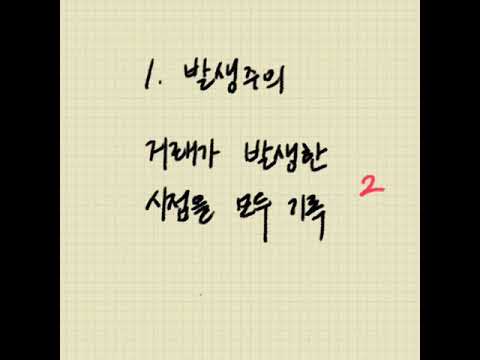 1. 발생주의
거래가 발생한
시점을 모두 기록
2